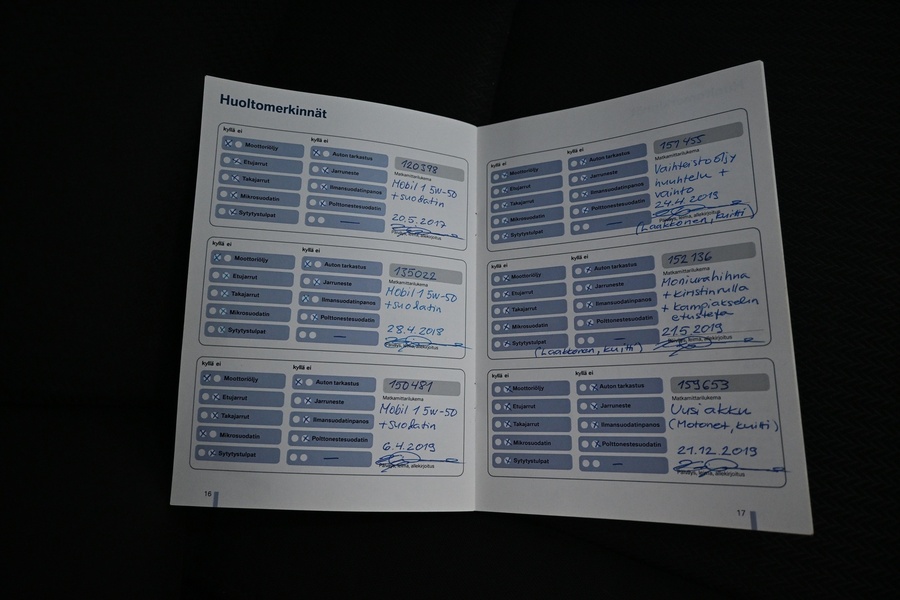 Huoltomerkinnät
kyllä ei
kyllä ei
Moottoriöljy
Etujarrut
Takajarrut
Mikrosuodatin
Sytytystulpat
Auton tarkastus
Jarruneste
Ilmansuodatinpanos
Polttonestesuodatin
—
120398
Matkamittarilukema
Mobil 1 5w-50
+suodatin
20.5.2017
Päiväys, leima, allekirjoitus
kyllä ei
kyllä ei
Moottoriöljy
Etujarrut
Takajarrut
Mikrosuodatin
Sytytystulpat
Auton tarkastus
Jarruneste
Ilmansuodatinpanos
Polttonestesuodatin
—
135022
Matkamittarilukema
Mobil 1 5w-50
+suodatin
28.4.2018
Päiväys, leima, allekirjoitus
kyllä ei
kyllä ei
Moottoriöljy
Etujarrut
Takajarrut
Mikrosuodatin
Sytytystulpat
Auton tarkastus
Jarruneste
Ilmansuodatinpanos
Polttonestesuodatin
—
150481
Matkamittarilukema
Mobil 1 5w-50
+suodatin
6.4.2019
Päiväys, leima, allekirjoitus
16
kyllä ei
kyllä ei
Moottoriöljy
Etujarrut
Takajarrut
Mikrosuodatin
Sytytystulpat
Auton tarkastus
Jarruneste
Ilmansuodatinpanos
Polttonestesuodatin
—
151455
Matkamittarilukema
Vaihteistoöljy
huuhtelu +
vaihto
24.4.2019
Päiväys, leima, allekirjoitus
(Laakkonen, kuitti)
kyllä ei
kyllä ei
Moottoriöljy
Etujarrut
Takajarrut
Mikrosuodatin
Sytytystulpat
Auton tarkastus
Jarruneste
Ilmansuodatinpanos
Polttonestesuodatin
—
152136
Matkamittarilukema
Moniurahihna
+ kiristinrulla
+ kampiakselin
etustefa
21.5.2019
Päiväys, leima, allekirjoitus
(Laakkonen, kuitti)
kyllä ei
kyllä ei
Moottoriöljy
Etujarrut
Takajarrut
Mikrosuodatin
Sytytystulpat
Auton tarkastus
Jarruneste
Ilmansuodatinpanos
Polttonestesuodatin
—
159653
Matkamittarilukema
Uusi akku
(Motonet, kuitti)
21.12.2019
Päiväys, leima, allekirjoitus
17